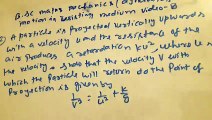 B.sc major mechanics (dynamics)
motion in resisting medium video-8
① A particle is projected vertically upwards
with a velocity and the resistance of the
air produces a retardation kv², where v is
the velocity. show that the velocity V with
which the particle will return to the Point of
Projection is given by
1/V² = 1/u² + k/g